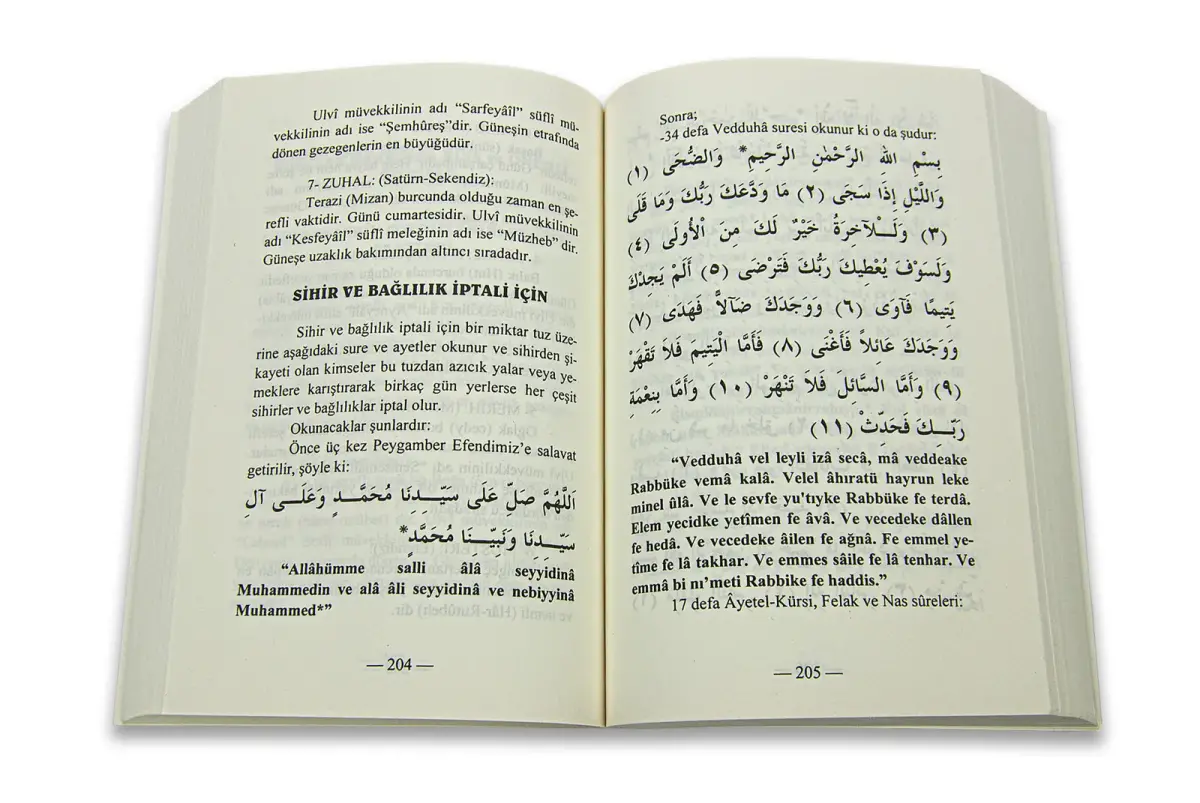 Ulvî müvekkilinin adı “Sarfeyâîl” süflî mü-
vekkilinin adı ise “Şemhûreş”dir. Güneşin etrafında
dönen gezegenlerin en büyüğüdür.
7- ZUHAL: (Satürn-Sekendiz):
Terazi (Mizan) burcunda olduğu zaman en şe-
refli vaktidir. Günü cumartesidir. Ulvî müvekkilinin
adı “Kesfeyâîl” süflî meleğinin adı ise “Müzheb” dir.
Güneşe uzaklık bakımından altıncı sıradadır.
SİHİR VE BAĞLILIK İPTALİ İÇİN
Sihir ve bağlılık iptali için bir miktar tuz üze-
rine aşağıdaki sure ve ayetler okunur ve sihirden şi-
kayeti olan kimseler bu tuzdan azıcık yalar veya ye-
meklere karıştırarak birkaç gün yerlerse her çeşit
sihirler ve bağlılıklar iptal olur.
Okunacaklar şunlardır:
Önce üç kez Peygamber Efendimiz’e salavat
getirilir, şöyle ki:
اَللّٰهُمَّ صَلِّ عَلَى سَيِّـدِنَا مُحَمَّـدٍ وَعَلَـى آلِ
سَيِّـدِنَا وَنَبِيِّـنَا مُحَمَّدٍ*
“Allâhümme salli âlâ seyyidinâ
Muhammedin ve alâ âli seyyidinâ ve nebiyyinâ
Muhammed*”
— 204 —
Sonra;
-34 defa Vedduhâ suresi okunur ki o da şudur:
بِسْمِ اللهِ الرَّحْمٰنِ الرَّحِيمِ* وَالضُّحَى (١)
وَاللَّيْلِ إِذَا سَجَى (٢) مَا وَدَّعَكَ رَبُّكَ وَمَا قَلَى
(٣) وَلَـلْآخِرَةُ خَيْرٌ لَكَ مِنَ الْأُولَى (٤)
وَلَسَوْفَ يُعْطِيكَ رَبُّكَ فَتَرْضَى (٥) أَلَمْ يَجِدْكَ
يَتِيمًا فَآوَى (٦) وَوَجَدَكَ ضَآلاًّ فَهَدَى (٧)
وَوَجَدَكَ عَائِلاً فَأَغْنَى (٨) فَأَمَّا الْيَتِيمَ فَلاَ تَقْهَرْ
(٩) وَأَمَّا السَّائِلَ فَلاَ تَنْهَرْ (١٠) وَأَمَّا بِنِعْمَةِ
رَبِّـكَ فَحَدِّثْ (١١)
“Vedduhâ vel leyli izâ secâ, mâ veddeake
Rabbüke vemâ kalâ. Velel âhıratü hayrun leke
minel ûlâ. Ve le sevfe yu'tıyke Rabbüke fe terdâ.
Elem yecidke yetîmen fe âvâ. Ve vecedeke dâllen
fe hedâ. Ve vecedeke âilen fe ağnâ. Fe emmel ye-
tîme fe lâ takhar. Ve emmes sâile fe lâ tenhar. Ve
emmâ bi nı’meti Rabbike fe haddis.”
17 defa Âyetel-Kürsi, Felak ve Nas sûreleri:
— 205 —